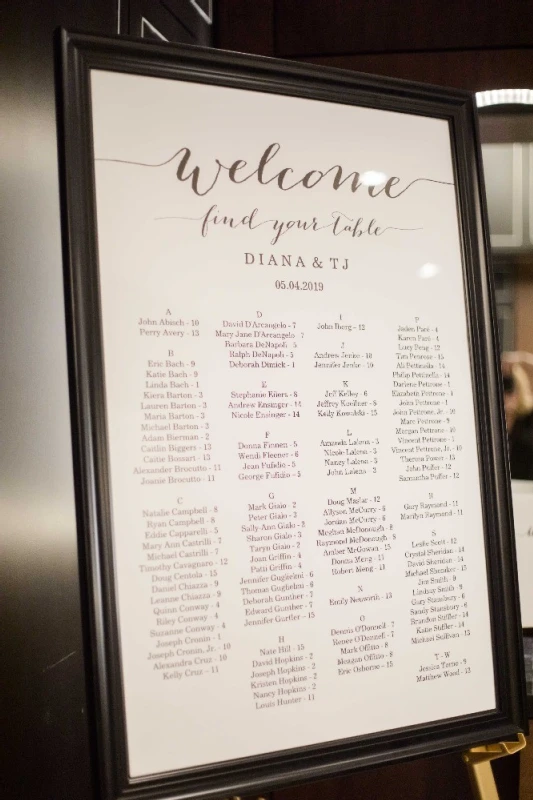 welcome
find your table
DIANA & TJ
05.04.2019
A
John Abisch - 10
Perry Avery - 13
B
Eric Bach - 9
Katie Bach - 9
Linda Bach - 1
Kiera Barton - 3
Lauren Barton - 3
Maria Barton - 3
Michael Barton - 3
Adam Bierman - 2
Caitlin Biggers - 13
Caitie Bossart - 13
Alexander Brocutto - 11
Joanie Brocutto - 11
C
Natalie Campbell - 8
Ryan Campbell - 8
Eddie Capparelli - 5
Mary Ann Castrilli - 7
Michael Castrilli - 7
Timothy Cavagnaro - 12
Doug Centola - 15
Daniel Chiazza - 9
Leanne Chiazza - 9
Quinn Conway - 4
Riley Conway - 4
Suzanne Conway - 4
Joseph Cronin - 1
Joseph Cronin, Jr. - 10
Alexandra Cruz - 10
Kelly Cruz - 11
D
David D'Arcangelo - 7
Mary Jane D'Arcangelo - 7
Barbara DeNapoli - 5
Ralph DeNapoli - 5
Deborah Dimick - 1
E
Stephanie Eilers - 8
Andrew Ensinger - 14
Nicole Ensinger - 14
F
Donna Fionen - 5
Wendi Fleener - 6
Jean Fufidio - 5
George Fufidio - 5
G
Mark Giaio - 2
Peter Giaio - 3
Sally-Ann Giaio - 3
Sharon Giaio - 3
Taryn Giaio - 2
Joan Griffin - 4
Patti Griffin - 4
Jennifer Guglielmi - 6
Thomas Guglielmi - 8
Deborah Gunther - 7
Edward Gunther - 7
Jennifer Gurtler - 15
H
Nate Hill - 15
David Hopkins - 2
Joseph Hopkins - 2
Kristen Hopkins - 2
Nancy Hopkins - 2
Louis Hunter - 11
I
John Iberg - 12
J
Andrew Jenko - 10
Jennifer Jenko - 10
K
Jeff Kelley - 6
Jeffrey Koellner - 6
Kelly Kowalski - 15
L
Amanda Lalena - 5
Nicole Lalena - 5
Nancy Lalena - 5
John Lalena - 5
M
Doug Maslar - 12
Allyson McCurry - 6
Jordan McCurry - 6
Meghan McDonough - 8
Raymond McDonough - 8
Amber McGowan - 15
Donna Meng - 11
Robert Meng - 11
N
Emily Neuworth - 13
O
Dennis O'Donnell - 7
Renee O'Donnell - 7
Mark Offisio - 8
Meagan Offisio - 8
Eric Osborne - 15
P
Jaden Pani - 4
Karen Pani - 4
Lucy Peng - 12
Tim Perreau - 15
Philip Petitrella - 14
Darlene Petrone - 1
Elizabeth Petrone - 1
John Petrone - 1
John Petrone, Jr. - 10
Marc Petrone - 9
Morgan Petrone - 10
Vincent Petrone - 1
Vincent Petrone, Jr. - 10
Theresa Power - 13
John Puffer - 12
Samantha Puffer - 12
R
Gary Raymond - 11
Marilyn Raymond - 11
S
Leslie Scott - 12
Crystal Sheridan - 14
David Sheridan - 14
Michael Shenaker - 15
Jen Smith - 9
Lindsay Smith - 9
Gary Stansbury - 6
Sandy Stansbury - 6
Brandon Stiffler - 14
Katie Stiffler - 14
Michael Sullivan - 13
T - W
Jessica Torne - 9
Matthew Ward - 13